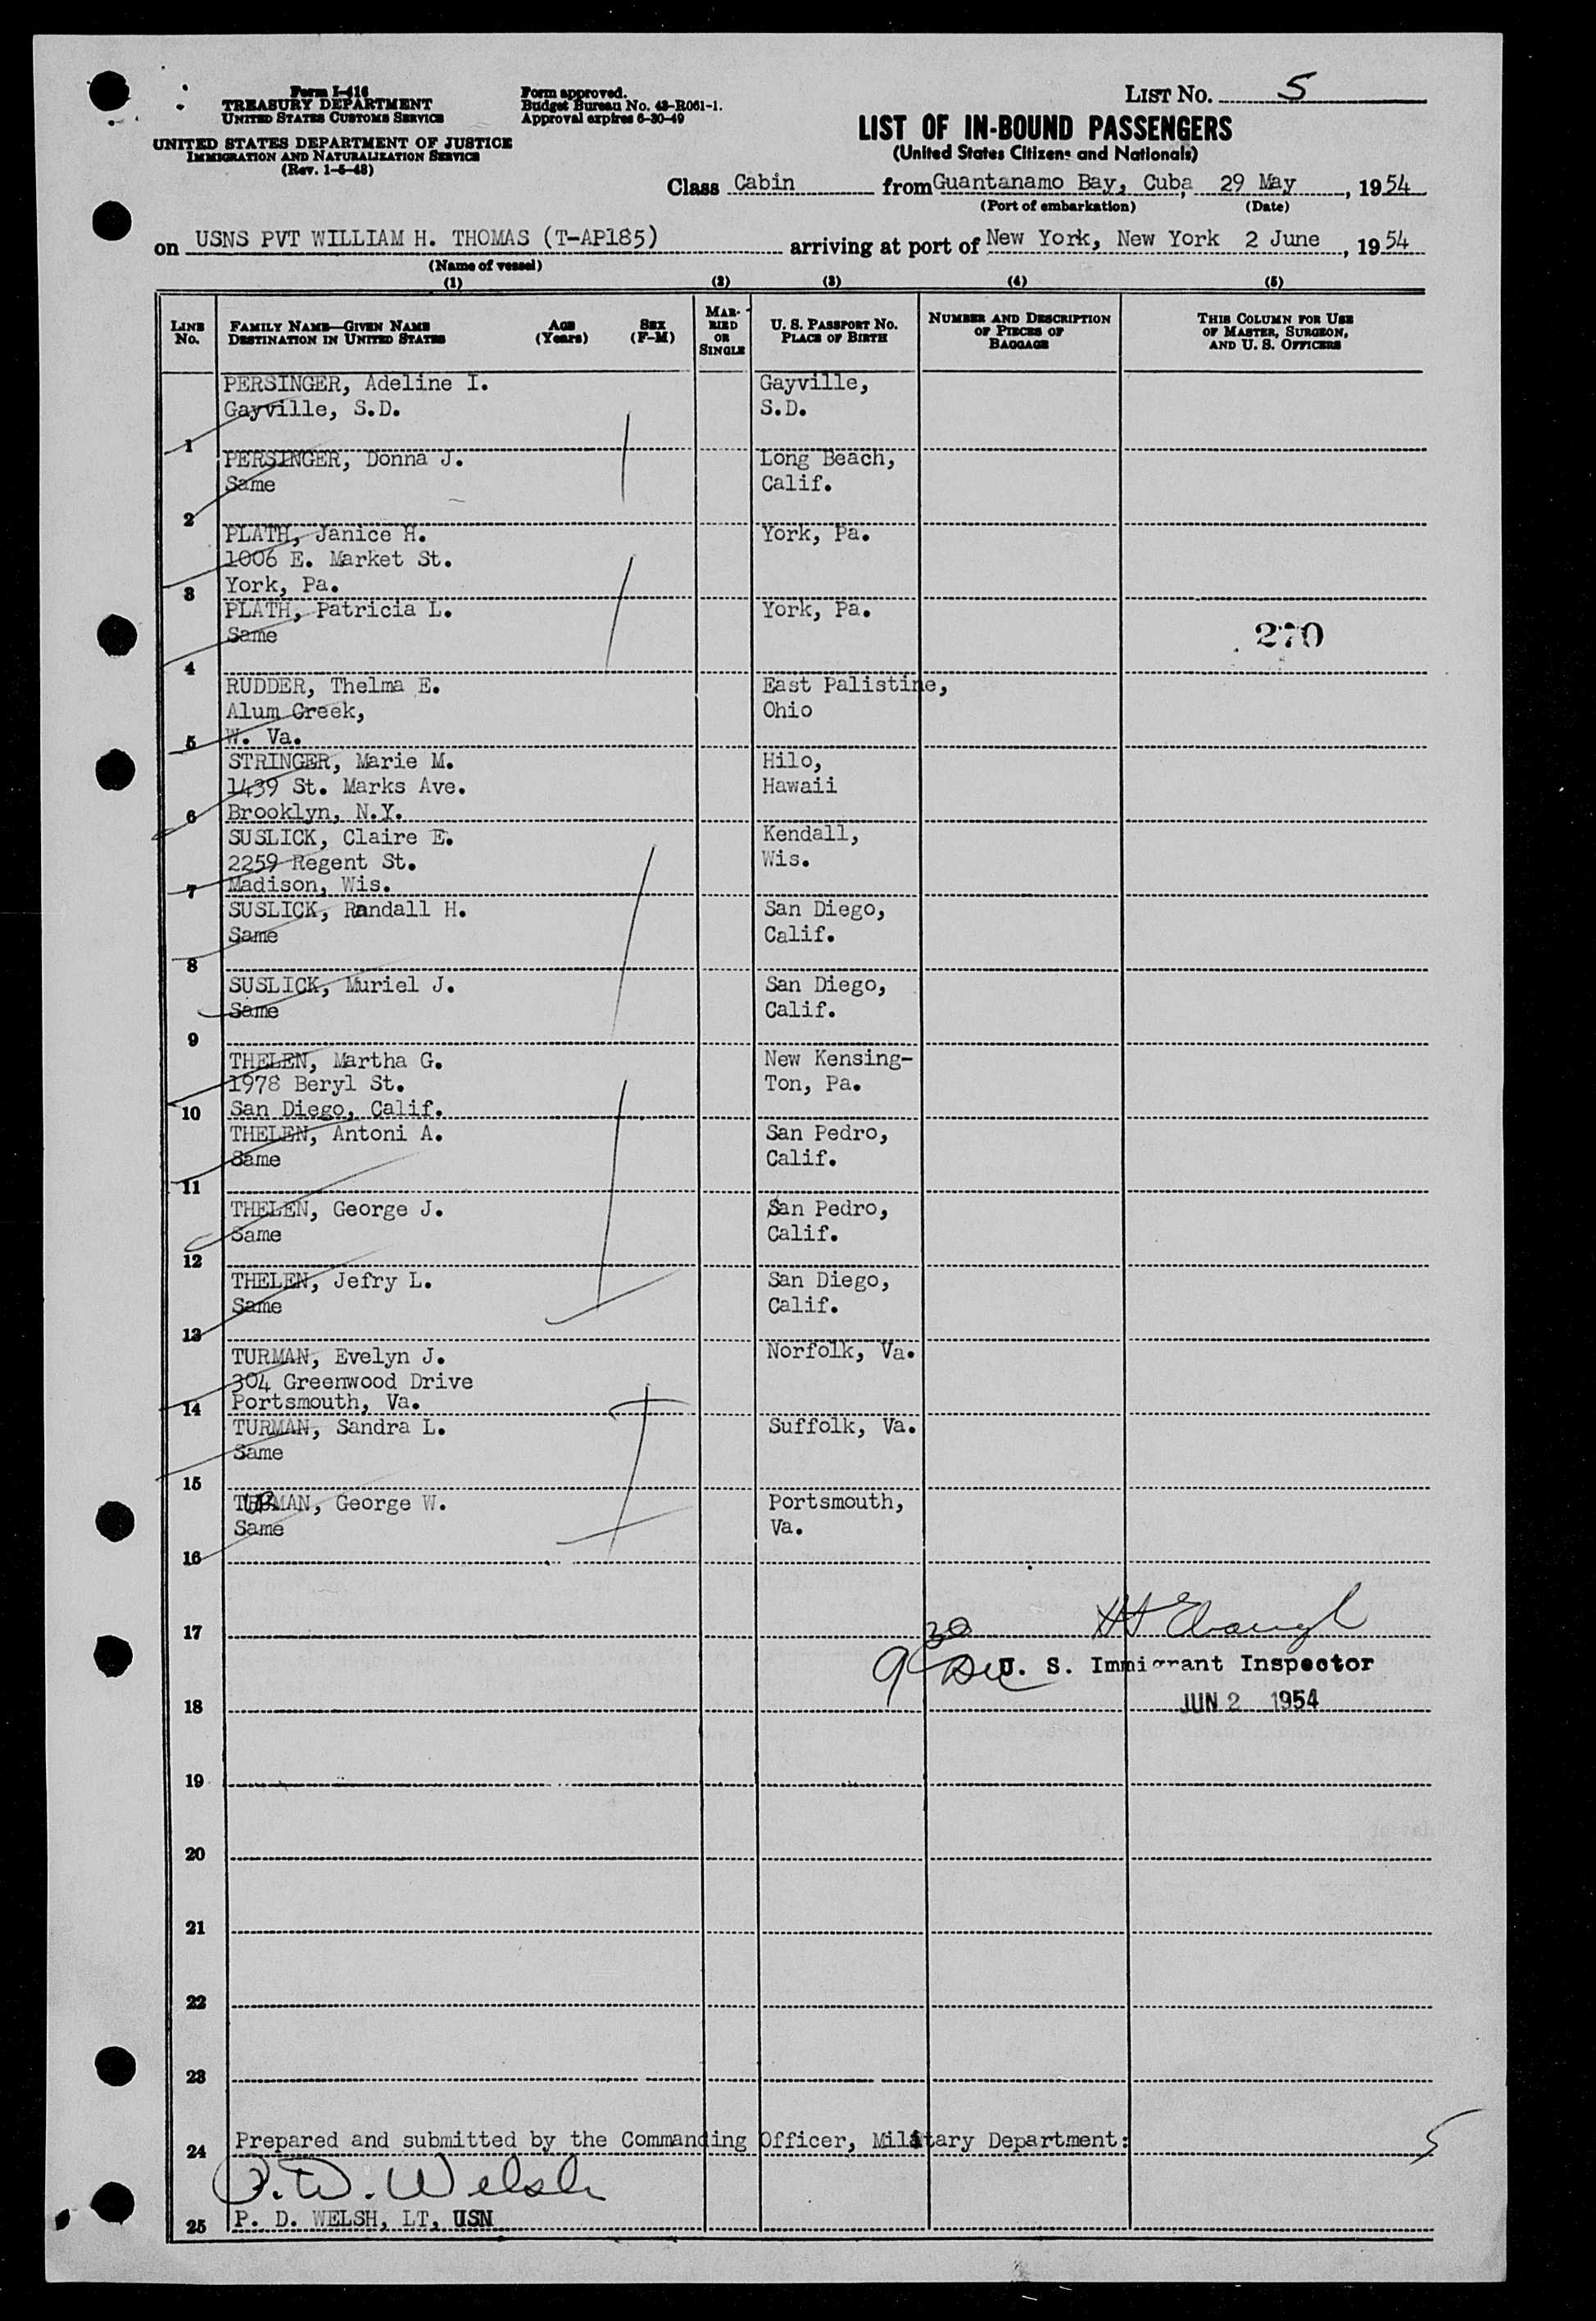 LIST NO. 5
Form I-416
TREASURY DEPARTMENT
UNITED STATES CUSTOMS SERVICE
UNITED STATES DEPARTMENT OF JUSTICE
IMMIGRATION AND NATURALIZATION SERVICE
(Rev. 1-5-48)
Form approved.
Budget Bureau No. 43-R061-1.
Approval expires 6-30-49
LIST OF IN-BOUND PASSENGERS
(United States Citizens and Nationals)
Class Cabin from Guantanamo Bay, Cuba, 29 May, 1954
(Port of embarkation) (Date)
on USNS PVT WILLIAM H. THOMAS (T-AP185) arriving at port of New York, New York 2 June, 1954
(Name of vessel)
(1) (2) (3) (4) (5)
LINE NO.
FAMILY NAME—GIVEN NAME
DESTINATION IN UNITED STATES
AGE (Years)
SEX (F-M)
MARRIED OR SINGLE
U. S. PASSPORT NO.
PLACE OF BIRTH
NUMBER AND DESCRIPTION OF PIECES OF BAGGAGE
THIS COLUMN FOR USE OF MASTER, SURGEON, AND U. S. OFFICERS
PERSINGER, Adeline I. Gayville,
Gayville, S.D. S.D.
1
PERSINGER, Donna J. Long Beach,
Same Calif.
2
PLATH, Janice H. York, Pa.
1006 E. Market St.
3 York, Pa.
PLATH, Patricia L. York, Pa.
Same 270
4
RUDDER, Thelma E. East Palistine,
Alum Creek, Ohio
5 W. Va.
STRINGER, Marie M. Hilo,
1439 St. Marks Ave. Hawaii
6 Brooklyn, N.Y.
SUSLICK, Claire E. Kendall,
2259 Regent St. Wis.
7 Madison, Wis.
SUSLICK, Randall H. San Diego,
Same Calif.
8
SUSLICK, Muriel J. San Diego,
Same Calif.
9
THELEN, Martha G. New Kensing-
1978 Beryl St. Ton, Pa.
10 San Diego, Calif.
THELEN, Antoni A. San Pedro,
Same Calif.
11
THELEN, George J. San Pedro,
Same Calif.
12
THELEN, Jefry L. San Diego,
Same Calif.
13
TURMAN, Evelyn J. Norfolk, Va.
304 Greenwood Drive
14 Portsmouth, Va.
TURMAN, Sandra L. Suffolk, Va.
Same
15
TURMAN, George W. Portsmouth,
Same Va.
16
17
U. S. Immigrant Inspector
18 JUN 2 1954
19
20
21
22
23
24 Prepared and submitted by the Commanding Officer, Military Department: 5
P. D. Welsh
25 P. D. WELSH, LT, USN